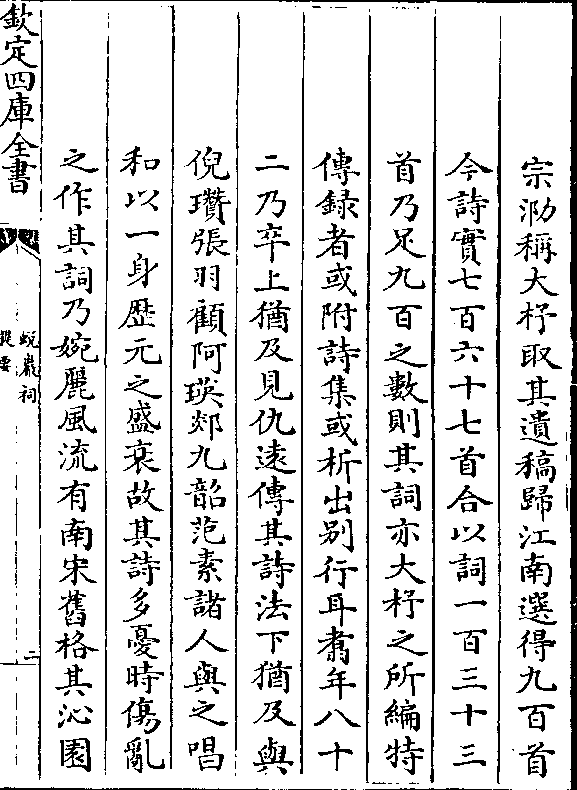 宗泐稱大杼取其遺稿歸江南選得九百首
今詩實七百六十七首合以詞一百三十三
首乃足九百之數則其詞亦大杼之所編特
傳録者或附詩集或析出别行耳翥年八十
二乃卒上猶及見仇逺傳其詩法下猶及與
倪瓚張羽顧阿瑛郯九韶范素諸人與之唱
和以一身歴元之盛衰故其詩多憂時傷亂
之作其詞乃婉麗風流有南宋舊格其沁園
欽定四庫全書
蛻巖詞
提要
二